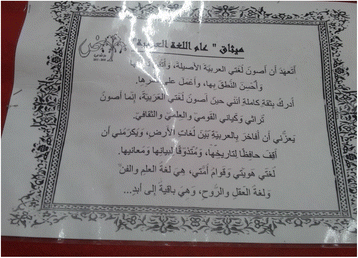 ميثاق " عام اللغة العربية "
أتعهّد أن أصونَ لغتي العربيّة الأصيلة، و
وأحْسِنَ النّطق بها، وأعمل على
أدركُ بثقةٍ كاملةٍ أنني حين أصونُ لغتي العربيّة، إنّما أصونُ
تراثي وكياني القومي والعلمي والثقافيّ.
يعزّني أن أفاخرَ بالعربيّةِ بَيْنَ لغات الأرض، ويكرّمُني أن
أقِفَ حافظًا لتاريخها، ومُتذوّقًا لبيانها ومعانيها.
لغتي هُويّتي وقوامُ أمّتي، هي لغة العلمِ والفنّ
ولغة العقلِ والرّوح، وهي باقيةٌ إلى أبدٍ...